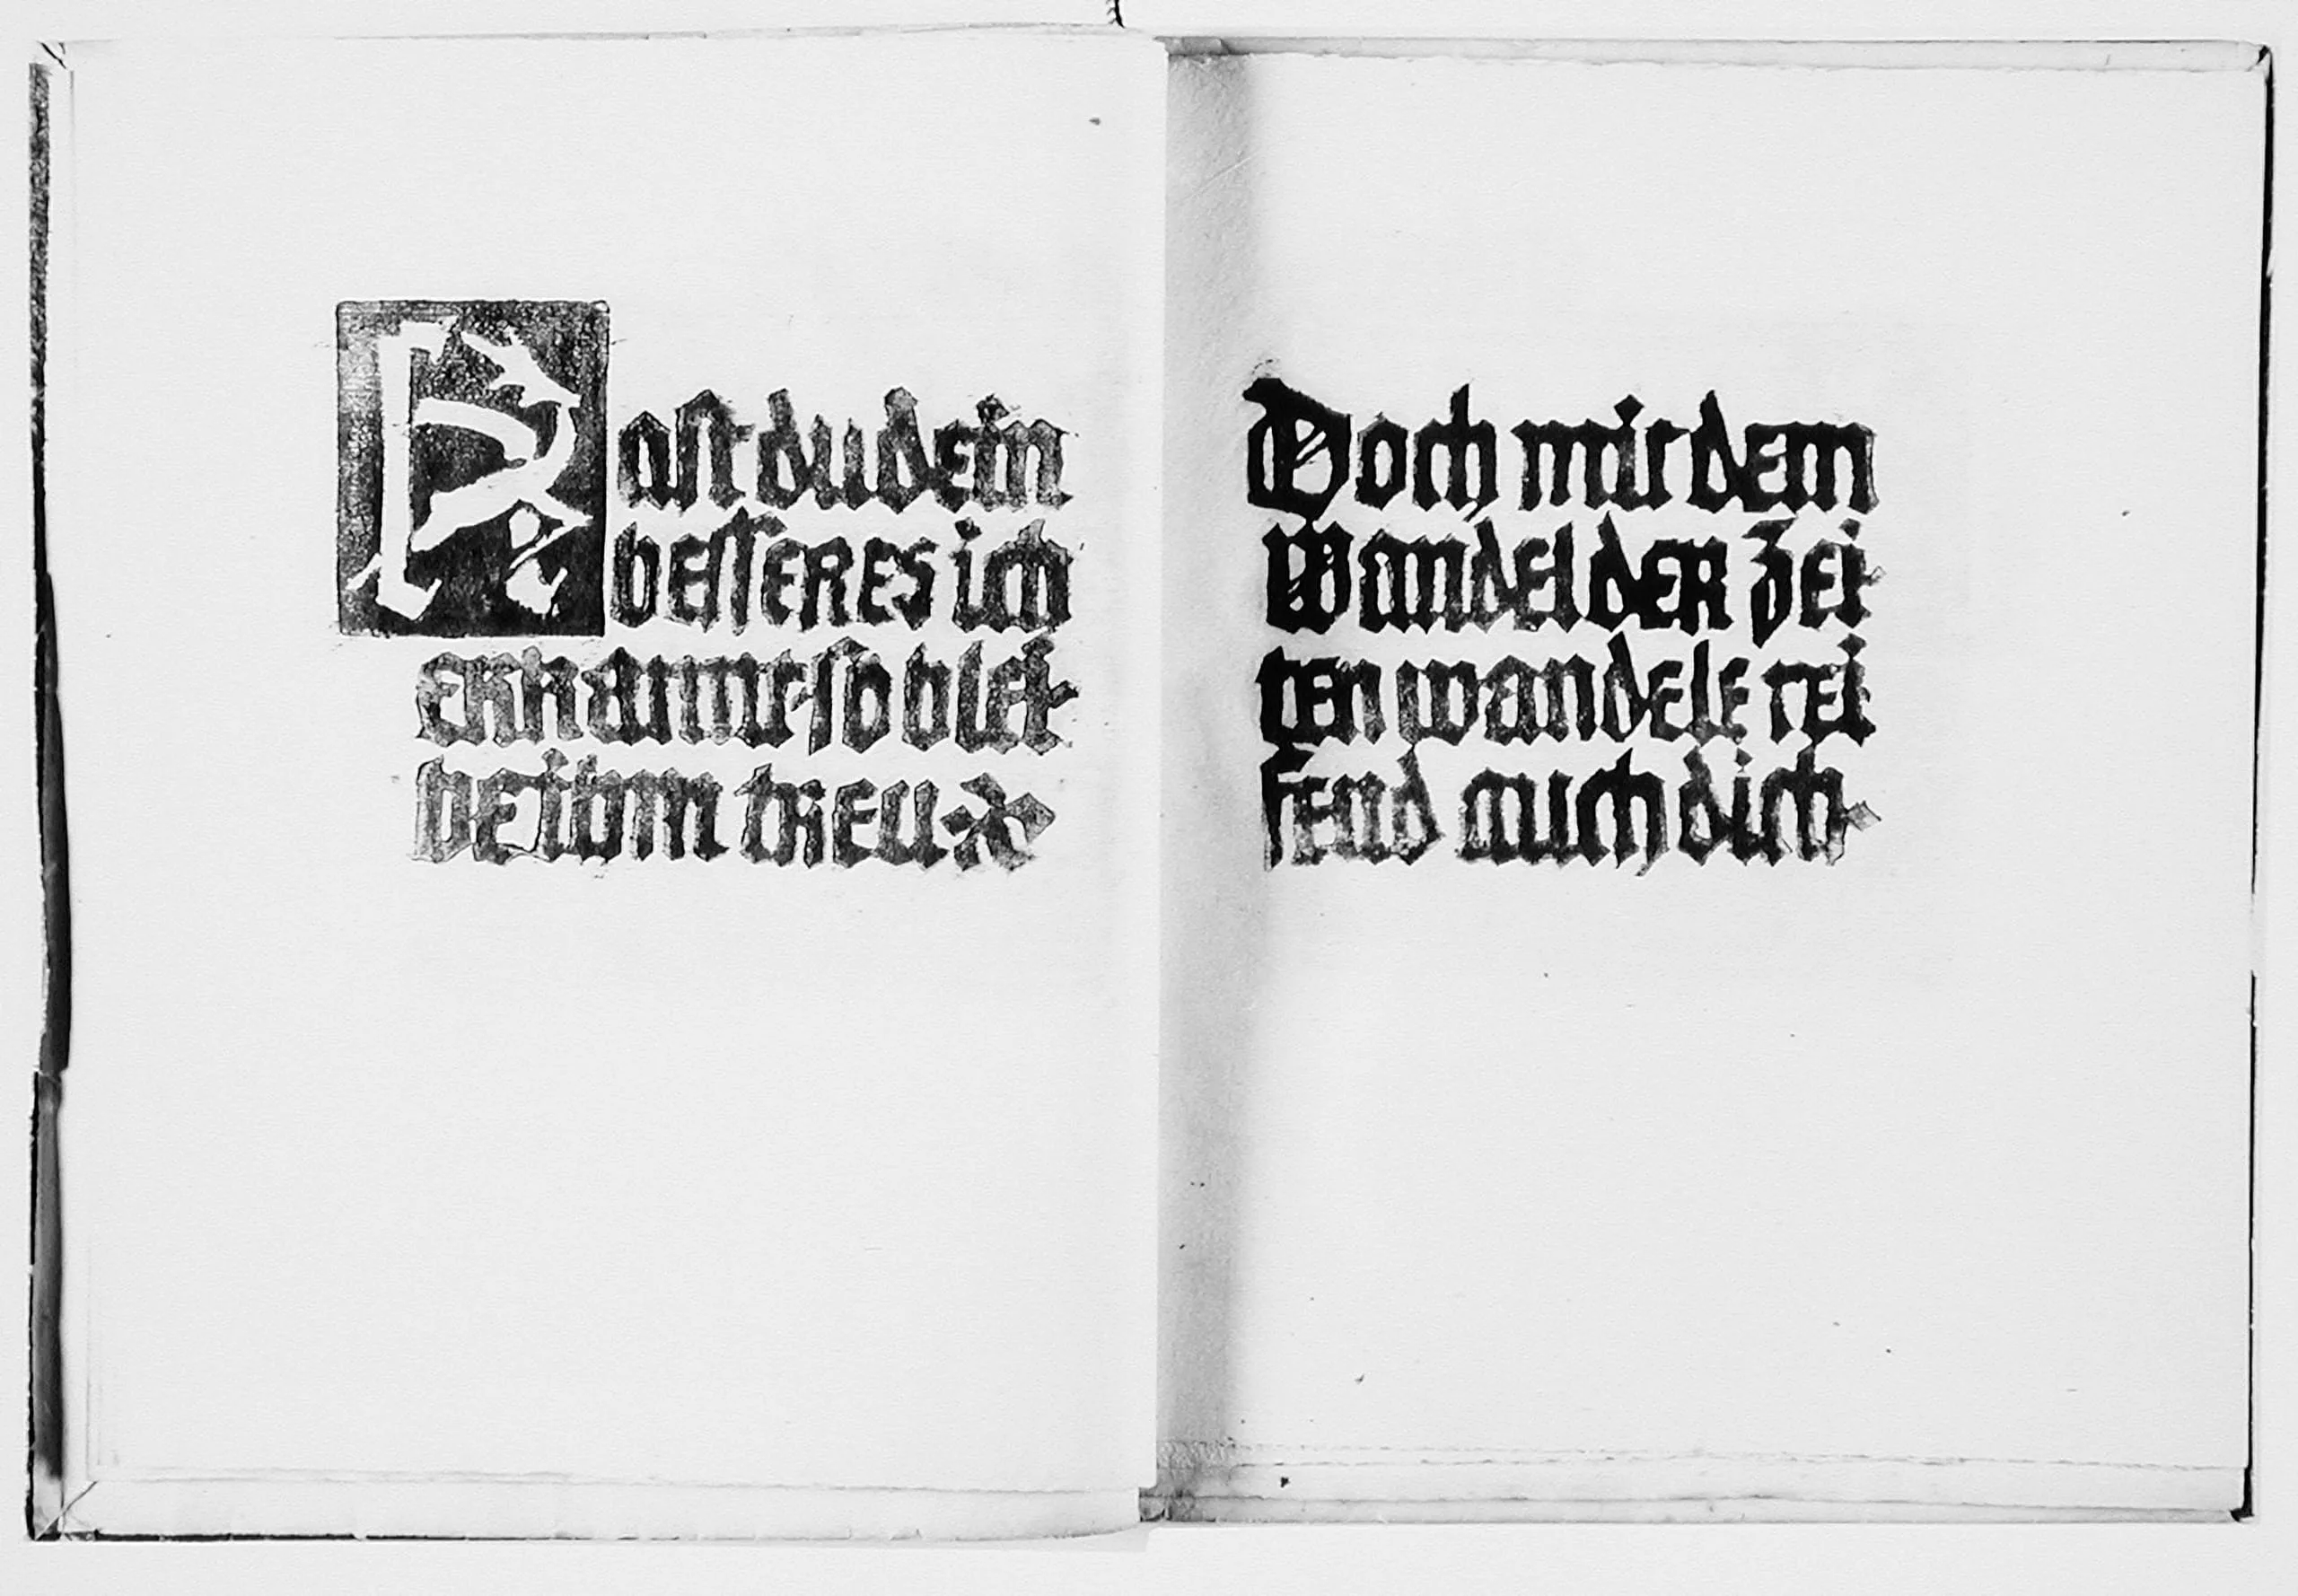 Hast du dein
besseres ich
erkannt so blei-
be ihm treu.
Doch mit dem
Wandel der Zei-
ten wandele rei
fend auch dich.